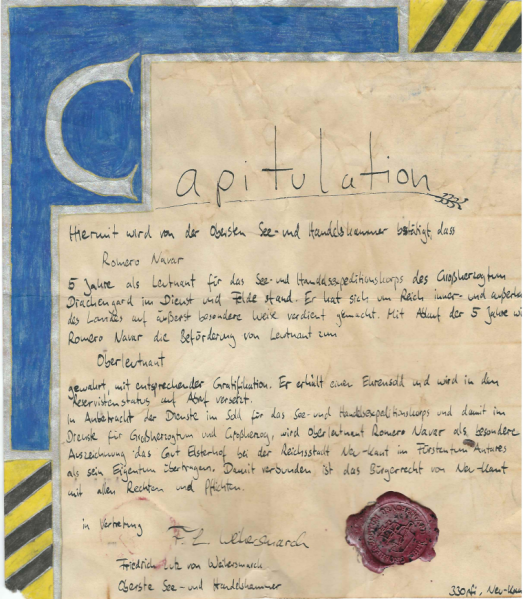 Capitulation
Hiermit wird von der Obersten See- und Handelskammer bestätigt, dass
Romero Navar
5 Jahre als Leutnant für das See- und Handelsexpeditionskorps des Großherzogtum
Drachengard im Dienst und Felde stand. Er hat sich um Reich inner- und außerhalb
des Landes auf äußerst besondere Weise verdient gemacht. Mit Ablauf der 5 Jahre wi
Romero Navar die Beförderung von Leutnant zum
Oberleutnant
gewährt, mit entsprechender Gratifikation. Er erhält einen Ehrensold und wird in den
Reservistenstatus auf Abruf versetzt.
In Anbetracht der Dienste im Sold für das See- und Handelsexpeditionskorps und damit im
Dienste für Großherzogtum und Großherzog, wird Oberleutnant Romero Navar als besondere
Auszeichnung das Gut Elsterhof bei der Reichsstadt Neu-Kaut im Fürstentum Antares
als sein Eigentum übertragen. Damit verbunden, ist das Bürgerrecht von Neu-Kaut
mit allen Rechten und Pflichten.
in Vertretung
F. L.
Friedrich Lutz von Weikersmarch
Oberste See- und Handelskammer
Neu-Kau